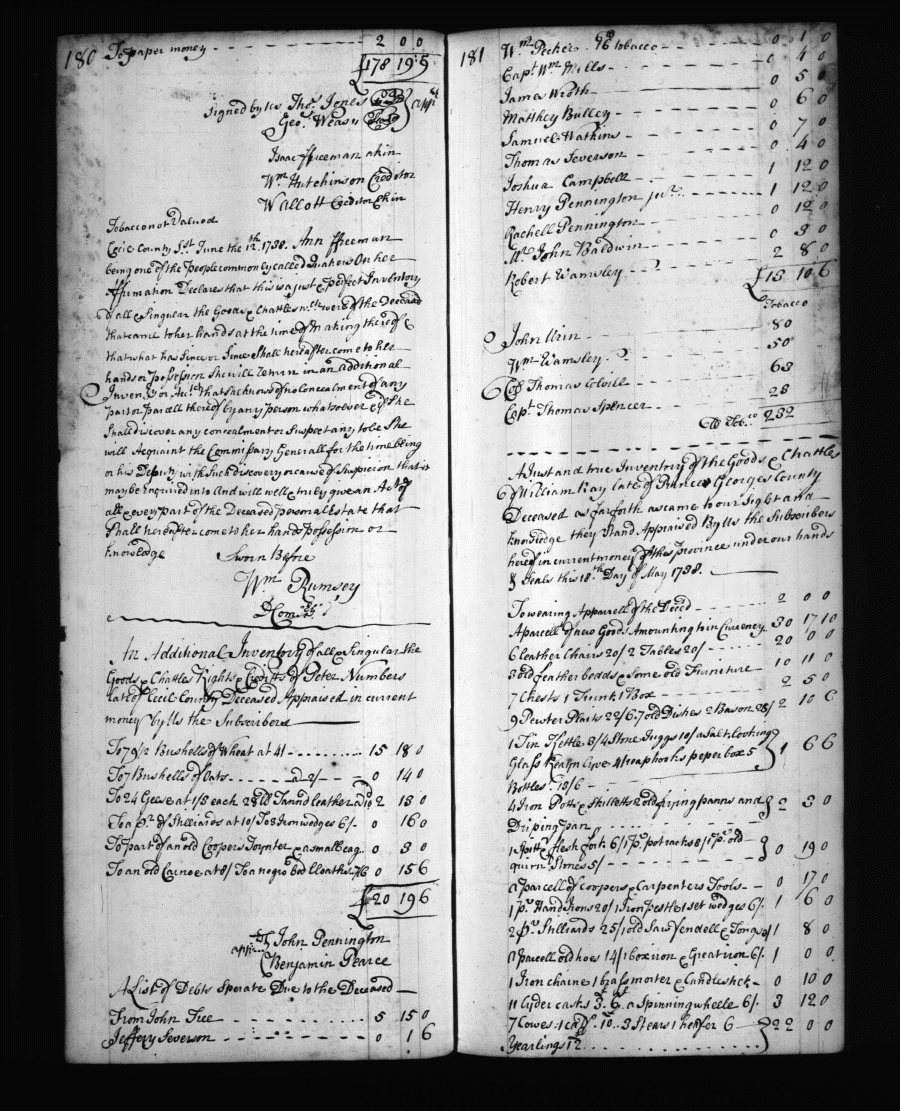 180 To paper money - - - 2 0 0
£178 19 5
Signed by Us Thos. Jones
Geo. Weasy
Isaac ffreeman akin
Wm. Hutchinson Creditor
Wallott Creditor Ekin
Tobacco not Valued
Cecil County Sst. June the 12th. 1738. Ann ffreeman
being one of the People commonly called Quakers On her
Affirmation Declares that this is a just & perfect Inventory
of all & Singular the Goods & Chattles wch. were of the Deceased
that came to her hands at the time of making thereof &
that what has Since or Since Shall hereafter come to her
hands or possession She will return in an additional
Inventy. or Acct. that She knows of no Concealment of any
part or parcell thereof by any person whatsoever & if She
Shall discover any concealment or Suspect any to be She
will Acquaint the Commissary Generall for the time being
or his Deputy with Such discovery or cause of Suspicion that it
may be Enquired into And will well & truly give an Act. of
all & every part of the Deceased personal Estate that
Shall hereafter come to her hands possession or
knowledge Sworn Before
Wm. Rumsey
D Comry.
An Additional Inventory of all & Singular the
Goods & Chattles Rights & Creditts of Peter Numbers
late of Cecil County Deceased Appraised in current
money by Us the Subscribers
To 79 1/2 Bushells of Wheat at 4/ - - - 15 18 0
To 7 Bushells of Oats - - - a 2/ - - 0 14 0
To 24 Geese at 1/3 each 28 lb Tann'd leather 2 18 0
To a pr. of Stilliards at 10/ To 3 Iron wedges 6/ - 0 16 0
To part of an old Coopers Joynter & a small bag - 0 3 0
To an old Cannoe at 8/ To a negro bed Cloaths 7/6 0 15 6
£20 19 6
John Pennington
Benjamin Pearce
A List of Debts Sperate Due to the Deceased
From John Tree - - - 5 15 0
Jeffery Severson - - - 0 1 6
181 Wm. Pecker 96 tobacco - - - 0 1 0
Capt. Wm. Mills - - - 0 4 0
James Wroth - - - 0 5 0
Matthey Bulley - - - 0 6 0
Samuel Watkins - - - 0 7 0
Thomas Severson - - - 0 4 0
Joshua Campbell - - - 1 12 0
Henry Pennington junr. - - - 1 12 0
Rachell Pennington - - - 0 12 0
Mr. John Baldwin - - - 0 3 0
Robert Wamsley - - - 2 8 0
£13 10 6
Tobacco
John Urin - - - 80
Wm. Wamsley - - - 50
Col Thomas Colvill - - - 63
Capt. Thomas Spencer - - - 28
lb Tobco. 232
A Just and true Inventory of the Goods & Chattles
of William Ray late of Prince Georges County
Deceased as far forth as came to our Sight and
knowledge they Stand Appraised By Us the Subscribers
hereof in current money of this Province under our hands
& Seals this 18th Day of May 1738.
To wearing Apparrell of the Deced - - - 2 0 0
A parcell of new Goods Amounting to in Currency 30 17 10
6 leather Chairs 20/ 2 Tables 20/ - - - 20 0 0
3 old feather beds & Some old Furniture - - - 10 11 0
7 Chests 1 Trunk 1 Box - - - 2 5 0
9 Pewter Plaits 22/6 7 old Dishes 2 Bason 28/ 2 10 6
1 Tin Kettle 8/ 4 Stone Juggs 10/ a Salt, looking
Glass 4 reaphooks peper box 5 } 1 6 6
Bottles 13/6
4 Iron Potts & Skilletts 2 old frying panns and } 2 3 0
Driping pan
1 Spitt & flesh fork 6/ 1 pr. pot racks 8/ 1 pr. old } 0 19 0
quirn Stones 5/
a parcell of coopers & Carpenters Tools - - 0 17 0
1 pr. Hand Irons 20/ 1 Iron pestle 1 set wedges 6/ 1 6 0
2 pr. Stilliards 25/ 1 old Saw fendell & Tongs 1 8 0
a parcell old hoes 14/ 1 box iron & Great iron 6/ 1 0 0
1 Iron chaine 1 brass morter & Candlestick - 0 10 0
11 Cyder casks a Spinning wheele 6/ 3 12 0
7 Cowes 1 calf 10 - 3 Stears 1 heifer 6 - } 22 0 0
Yearlings 12 - - -